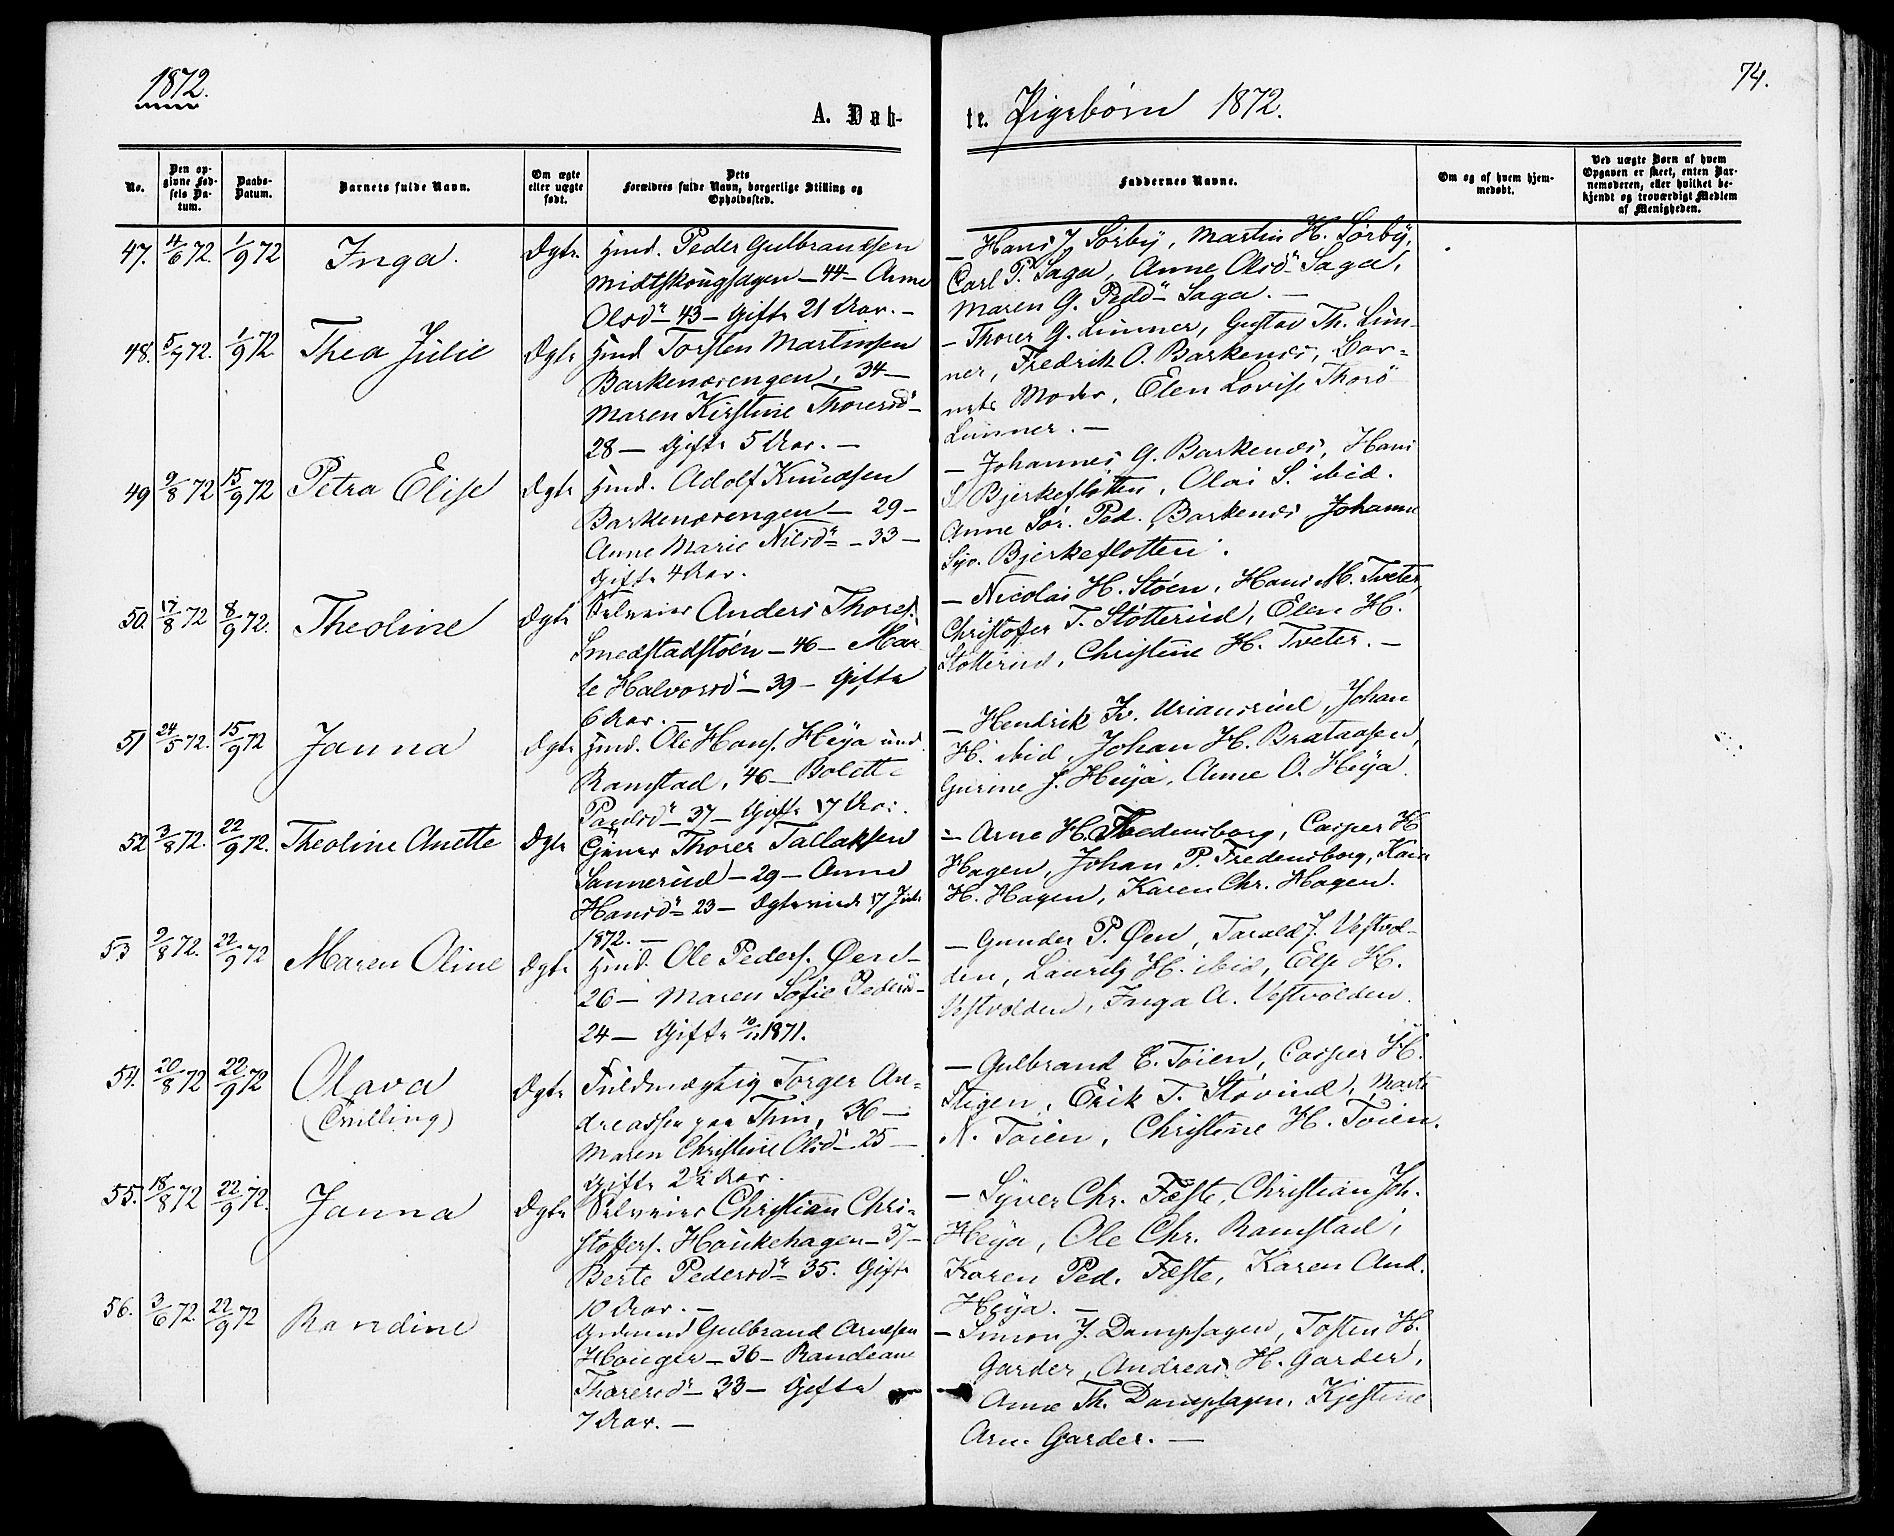 1872.
74.
A. Døb-
te. Pigebørn 1872.
No.
Den op-
givne Fød-
sels Da-
tum.
Daabs-
Datum.
Barnets fulde Navn.
Om ægte
eller uægte
født.
Dets
Forældres fulde Navn, borgerlige Stilling og
Opholdssted.
Faddernes Navne.
Om og af hvem hjem-
medøbt.
Ved uægte Børn af hvem
Opgaven er skeet, enten Bar-
nemoderen, eller hvilket be-
kjendt og troværdigt Medlem
af Menigheden.
47. 4/6 72 1/9 72 Inga. Ægte Hmd. Peder Gulbrandsen
Midtskougsagen - 44 - Anne
Olsdr - 43 - Gifte 21 Aar. -
- Hans J. Sørby, Martin H. Sørby,
Carl P. Saga, Anne Olsdr Saga,
Maren G. Pedr Saga. -
48. 5/7 72. 1/9 72 Thea Julie Ægte Hmd Torsten Martinsen
Barkenæsengen, 34 -
Maren Kirstine Thoresdr -
28 - Gifte 5 Aar. -
- Thorer G. Linner, Gustav Th. Lin-
ner, Fredrik O. Barkenæs, Bar-
nets Moder, Elen Lovise Thors
Linner. -
49 9/8 72 15/9 72 Petra Elise Ægte Hmd. Adolf Knudsen
Barkenæsengen - 29 -
Anne Marie Nilsdr - 33 -
Gifte 4 Aar.
- Johannes G. Barkenæs, Hans
S. Bjerkeflotten, Olai S. ibid.
Anne Sør. Ped. Barkenæs Johanne
Syv. Bjerkeflotten.
50. 17/8 72 8/9 72. Theoline Ægte Selveier Anders Thores.
Smedstadstøen - 46 - Mar
te Halvorsdr - 39 - Gifte
6 Aar. -
- Nicolai H. Støen, Hans M. Tveter,
Christoffer T. Støtterud, Elen H.
Støtterud, Christine H. Tveter. -
51 24/5 72. 15/9 72 Janna Ægte Hmd. Ole Hans. Heya und.
Ramstad, 46 - Bolette
Paulsdr - 37 - Gifte 17 Aar.
- Hendrik Iv. Uriansrud, Johan
H. ibid, Johan H. Brataasen,
Gurine J. Heya, Anne O. Heya.
52 3/8 72. 22/9 72. Theoline Anette Ægte Gjører Thorer Tallaksen
Sannerud - 29 - Anne
Hansdr - 23 - Ægteviede 17 Juli
1872. -
- Arne H. Fredensborg, Casper H
Hagen, Johan P. Fredensborg, Karen
H. Hagen, Karen Chr. Hagen.
53 9/8 72. 22/9 72 Maren Oline Ægte Hmd. Ole Peders. Øen -
26 - Maren Sofie Pedersd -
24 - Gifte 10/11 1871.
- Gunder P. Øen, Tarald J. Vestvol-
den, Lauritz H. ibid, Else H.
Vestvolden, Inga A. Vestvolden.
54. 20/8 72 22/9 72 Olava Ægte Fuldmægtig Torger An-
(Tvilling) dreassen paa Thin, 36 -
Maren Christine Olsdr - 25 -
Gifte 2½ Aar.
- Gulbrand E. Tøien, Casper H.
Stigen, Erik T. Støvind, Marte
N. Tøien, Christine H. Tøien.
55. 18/8 72 22/9 72. Janna Ægte Selveier Christian Chri-
stoffers. Haukehagen - 37 -
Berte Pedersdr - 35. Gifte
10 Aar. -
- Syver Chr. Fæste, Christian Joh.
Heya, Ole Chr. Ramstad,
Karen Ped. Fæste, Karen And.
Heya. -
56. 3/6 72. 22/9 72 Randine Gulbrand Arnesen
Houger - 36 - Randeane
Thoresdr - 33 - Gifte
7 Aar. -
- Simon J. Dampsagen, Tosten H.
Garder, Andreas H. Garder,
Anne Th. Dampsagen, Kjestine
Arn. Garder. -